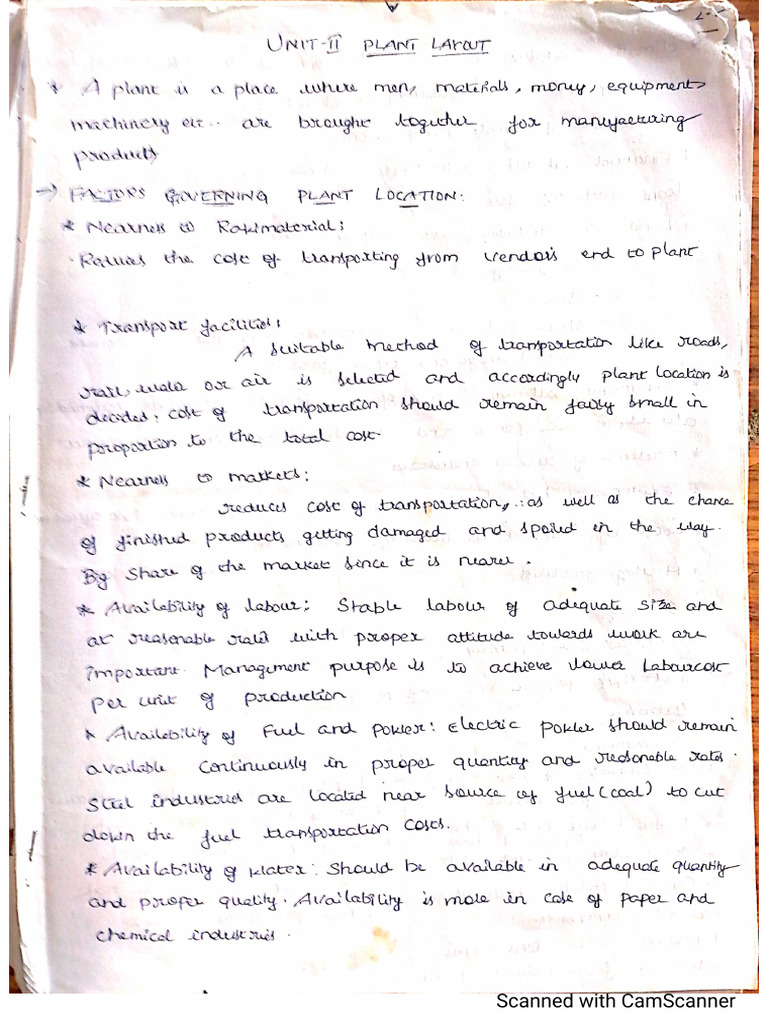 UNIT-II PLANT LAYOUT
* A plant is a place where men, materials, money, equipments
machinery etc.. are brought together for manufacturing
products
→ FACTORS GOVERNING PLANT LOCATION:
* Nearness to Rawmaterial:
Reduces the cost of transporting from vendor's end to plant
* Transport facilities:
A suitable method of transportation like roads,
rail, water or air is selected and accordingly plant location is
decided; cost of transportation should remain fairly small in
proportion to the total cost.
* Nearness to markets:
reduces cost of transportation, as well as the chance
of finished products getting damaged and spoiled in the way.
Big share of the market since it is nearer.
* Availability of labour: Stable labour of adequate size and
at reasonable rates with proper attitude towards work are
important. Management purpose is to achieve lower labourcost
per unit of production
* Availability of Fuel and power: Electric power should remain
available continuously in proper quantity and reasonable rates.
Steel industries are located near source of fuel (coal) to cut
down the fuel transportation costs.
* Availability of water: Should be available in adequate quantity
and proper quality. Availability is more in case of paper and
chemical industries.
Scanned with CamScanner